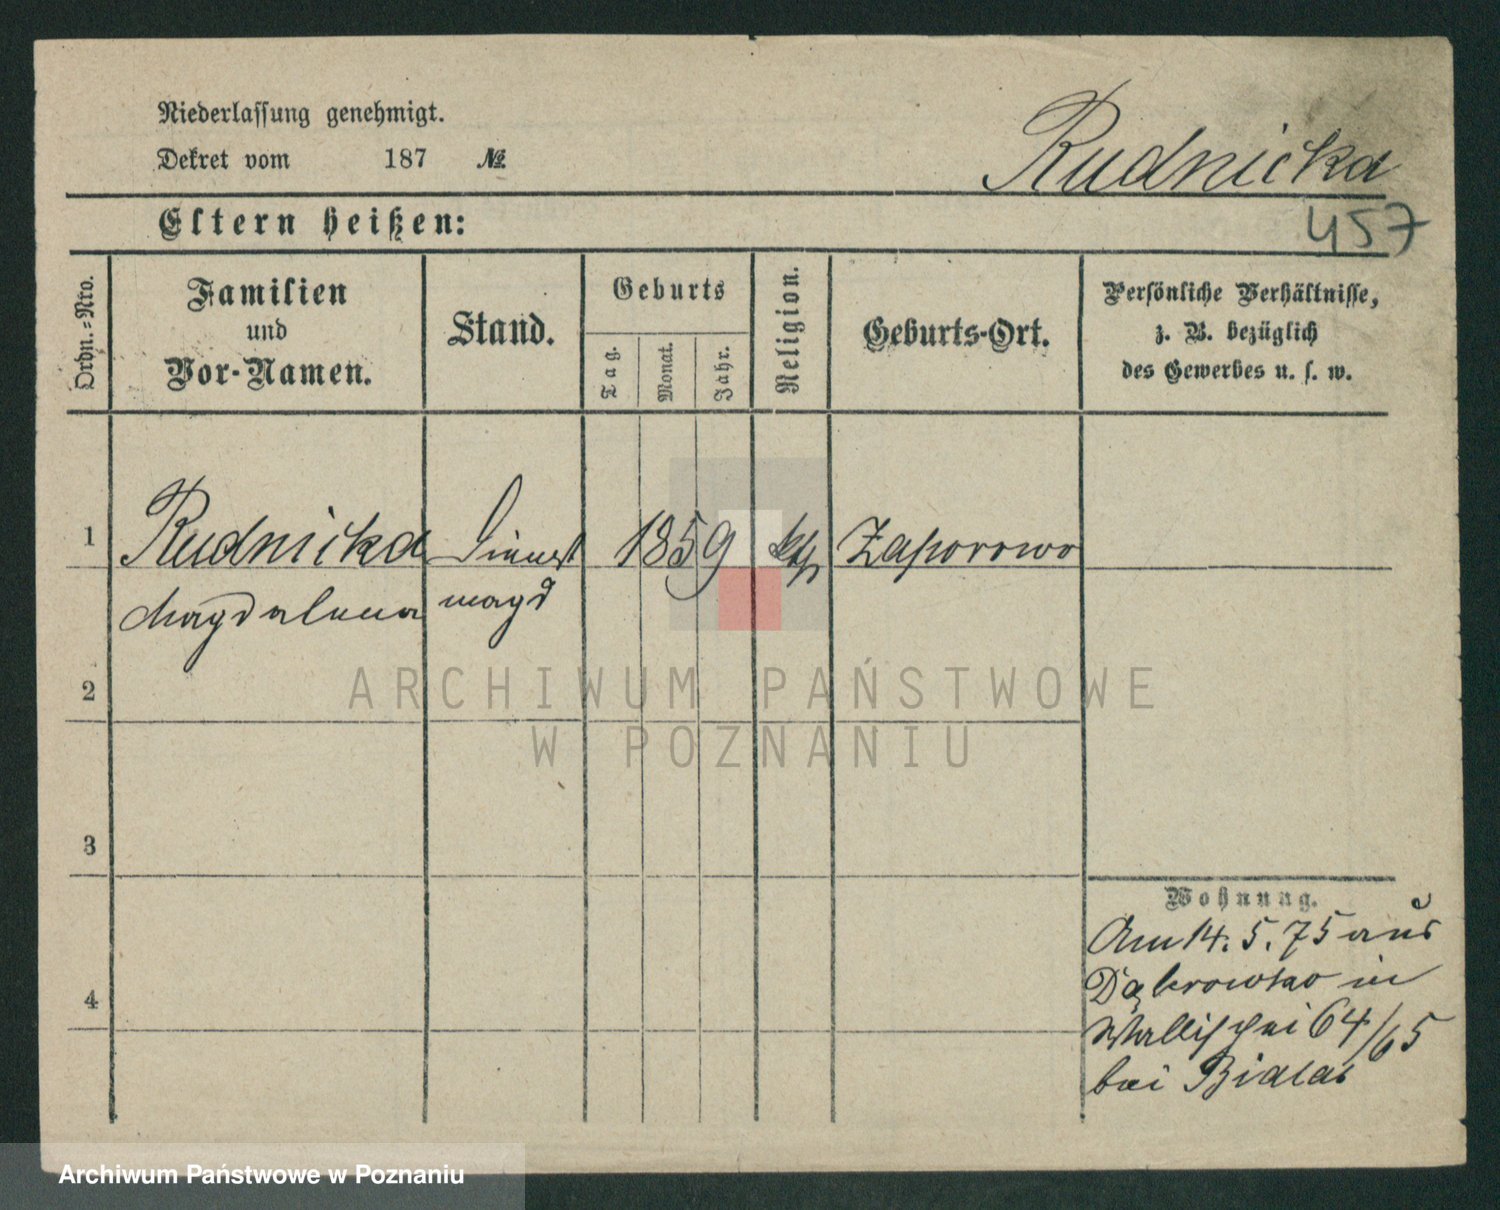 Niederlassung genehmigt.
Dekret vom 187 №
Rudnicka
457
Eltern heißen:
Ordn.-Nro.
Familien
und
Vor-Namen.
Stand.
Geburts
Tag.
Monat.
Jahr.
Religion.
Geburts-Ort.
Persönliche Verhältnisse,
z. B. bezüglich
des Gewerbes u. s. w.
1
Rudnicka Dienst 1859 kth Zaporowo
Magdalena magd
2
ARCHIWUM PAŃSTWOWE
W POZNANIU
3
Wohnung.
Am 14. 5. 75 aus
Dąbrowka in
4
Wallischei 64/65
bei Bialas
Archiwum Państwowe w Poznaniu